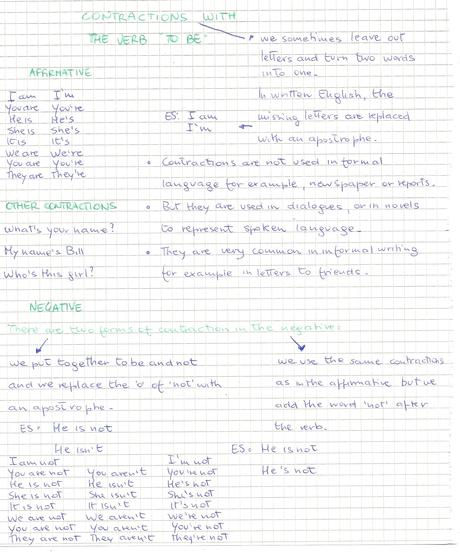 CONTRACTIONS WITH
THE VERB "TO BE"
we sometimes leave out
letters and turn two words
into one.
In written English, the
missing letters are replaced
with an apostrophe.
AFFIRMATIVE
I am I'm
You are You're
He is He's
She is She's
It is It's
We are We're
You are You're
They are They're
ES: I am
I'm
• Contractions are not used in formal
language for example, newspaper or reports.
• But they are used in dialogues, or in novels
to represent spoken language.
• They are very common in informal writing
for example in letters to friends.
OTHER CONTRACTIONS
What's your name?
My name's Bill
Who's this girl?
NEGATIVE
There are two forms of contraction in the negative:
we put together to be and not
and we replace the 'o' of 'not' with
an apostrophe.
ES: He is not
He isn't
we use the same contractions
as in the affirmative but we
add the word 'not' after
the verb.
ES: He is not
He's not
I am not I'm not
You are not You aren't You're not
He is not He isn't He's not
She is not She isn't She's not
It is not It isn't It's not
We are not We aren't We're not
You are not You aren't You're not
They are not They aren't They're not